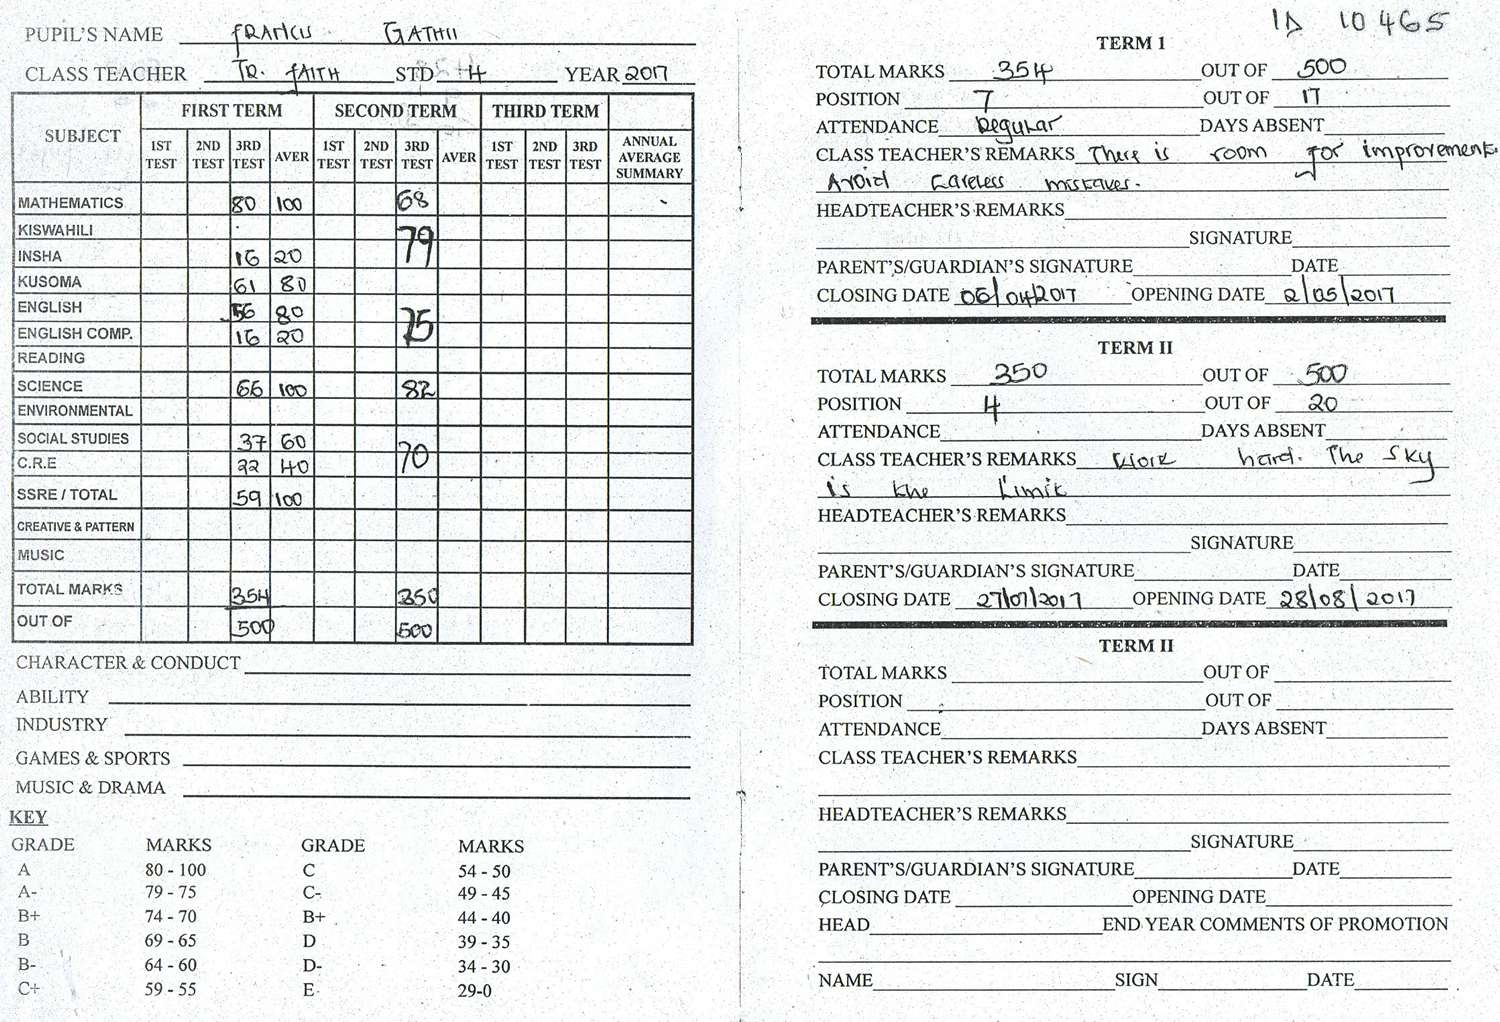 PUPIL'S NAME FRANCIS GATHII
CLASS TEACHER TR. FAITH STD 4 YEAR 2017
FIRST TERM SECOND TERM THIRD TERM
SUBJECT 1ST TEST 2ND TEST 3RD TEST AVER 1ST TEST 2ND TEST 3RD TEST AVER 1ST TEST 2ND TEST 3RD TEST ANNUAL AVERAGE SUMMARY
MATHEMATICS 80 100 68
KISWAHILI 79
INSHA 16 20
KUSOMA 61 80
ENGLISH 56 80 75
ENGLISH COMP. 16 20
READING
SCIENCE 66 100 82
ENVIRONMENTAL
SOCIAL STUDIES 37 60 70
C.R.E 22 40
SSRE / TOTAL 59 100
CREATIVE & PATTERN
MUSIC
TOTAL MARKS 354 350
OUT OF 500 500
CHARACTER & CONDUCT
ABILITY
INDUSTRY
GAMES & SPORTS
MUSIC & DRAMA
KEY
GRADE MARKS GRADE MARKS
A 80 - 100 C 54 - 50
A- 79 - 75 C- 49 - 45
B+ 74 - 70 B+ 44 - 40
B 69 - 65 D 39 - 35
B- 64 - 60 D- 34 - 30
C+ 59 - 55 E 29-0
ID 10465
TERM 1
TOTAL MARKS 354 OUT OF 500
POSITION 7 OUT OF 17
ATTENDANCE Regular DAYS ABSENT
CLASS TEACHER'S REMARKS There is room for improvement.
Avoid careless mistakes.
HEADTEACHER'S REMARKS
SIGNATURE
PARENT'S/GUARDIAN'S SIGNATURE DATE
CLOSING DATE 06/04/2017 OPENING DATE 2/05/2017
TERM II
TOTAL MARKS 350 OUT OF 500
POSITION 4 OUT OF 20
ATTENDANCE DAYS ABSENT
CLASS TEACHER'S REMARKS Work hard. The sky
is the limit
HEADTEACHER'S REMARKS
SIGNATURE
PARENT'S/GUARDIAN'S SIGNATURE DATE
CLOSING DATE 27/07/2017 OPENING DATE 28/08/2017
TERM II
TOTAL MARKS OUT OF
POSITION OUT OF
ATTENDANCE DAYS ABSENT
CLASS TEACHER'S REMARKS
HEADTEACHER'S REMARKS
SIGNATURE
PARENT'S/GUARDIAN'S SIGNATURE DATE
CLOSING DATE OPENING DATE
HEAD END YEAR COMMENTS OF PROMOTION
NAME SIGN DATE